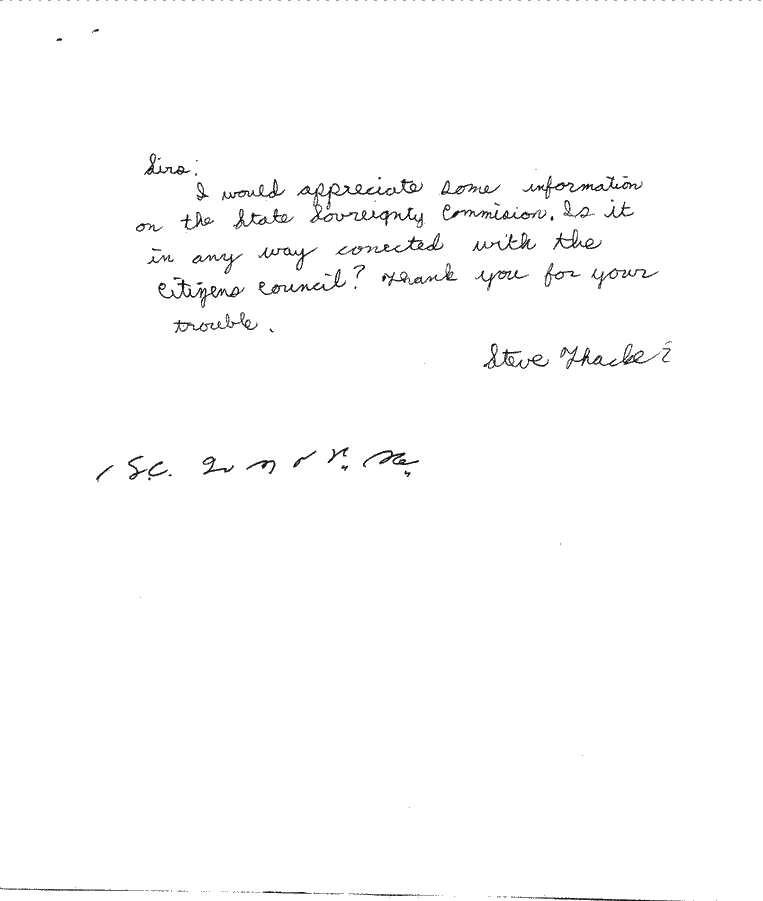 Sirs:
I would appreciate some information
on the State Sovreignty Commision. Is it
in any way conected with the
Citizens Council? Thank you for your
trouble.
Steve Thacker
S.C.